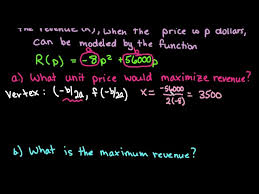 the revenue (R), when the price is p dollars,
can be modeled by the function
R(p) = -8p² + 56000p
a) What unit price would maximize revenue?
Vertex: (-b/2a, f(-b/2a)) x = -56000/2(-8) = 3500
b) What is the maximum revenue?